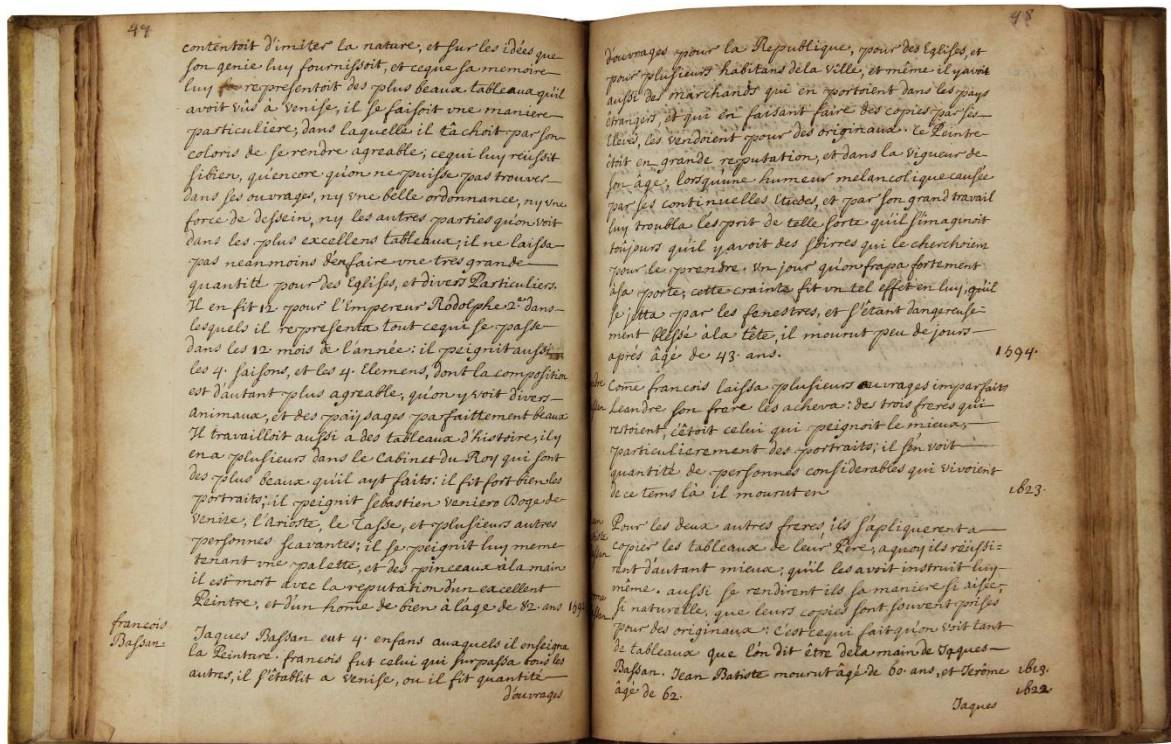 47
contentoit d'imiter la nature, et sur les idées que
son genie luy fournissoit, et ceque sa memoire
luy representoit des plus beaux tableaux qu'il
avoit vûs à venise, il se faisoit vne maniere
particuliere, dans laquelle il tâchoit par son
coloris de se rendre agreable; cequi luy reüssit
sibien, qu'encore qu'on ne puisse pas trouver
dans ses ouvrages, ny vne belle ordonnance, ny vne
force de dessein, ny les autres parties qu'on voit
dans les plus excellens tableaux; il ne laissa
pas neanmoins d'en faire vne tres grande
quantité pour des Eglises, et divers Particuliers.
Il en fit 12 pour l'Empereur Rodolphe 2e dans
lesquels il representa tout cequi se passe
dans les 12 mois de l'année: il peignit aussi
les 4. saisons, et les 4. Elemens, dont la composition
est d'autant plus agreable, qu'on y voit divers
animaux, et des païsages parfaittement beaux
Il travailloit aussi a des tableaux d'histoire, il y
en a plusieurs dans le Cabinet du Roy qui sont
des plus beaux qu'il ayt faits: il fit fort bien les
portraits; il peignit sebastien veniero Doge de
venise, l'Arioste, le Tasse, et plusieurs autres
personnes scavantes; il se peignit luy meme
tenant vne palette, et des pinceaux à la main
il est mort avec la reputation d'un excellent
Peintre, et d'un home de bien à l'âge de 82 ans 1592
francois
Bassan
Jaques Bassan eut 4. enfans auxquels il enseigna
la Peinture. francois fut celui qui surpassa tous les
autres, il s'établit a venise, ou il fit quantité
d'ouvrages
48
d'ouvrages pour la Republique, pour des Eglises, et
pour plusieurs habitans dela ville, et même il y avoit
aussi des marchands qui en portoient dans les pays
étrangers, et qui en faisant faire des copies par ses
Eleves, les vendoient pour des originaux. le Peintre
étoit en grande reputation, et dans la vigueur de
son âge, lorsqu'une humeur melancolique causée
par ses continuelles Etudes, et par son grand travail
luy troubla l'esprit de telle sorte qu'il s'imaginoit
toûjours qu'il y avoit des sbirres qui le cherchoient
pour le prendre. vn jour qu'on frapa fortement
àsa porte, cette crainte fit vn tel effet en luy, qu'il
se jetta par les fenestres, et s'étant dangereuse-
ment blessé àla tête, il mourut peu de jours
aprés âgé de 43. ans. 1594.
Come francois laissa plusieurs ouvrages imparfaits
Leandre son frere les acheva: des trois freres qui
restoient, c'étoit celui qui peignoit le mieux,
particulierement des portraits; il s'en voit
quantité de personnes considerables qui vivoient
de ce tems là il mourut en 1623.
Pour les deux autres freres ils s'apliquerent a
copier les tableaux de leur Pere, aquoy ils réussi-
rent d'autant mieux, qu'il les avoit instruit luy
même. aussi se rendirent ils sa maniere si aisée,
si naturelle, que leurs copies sont souvent prises
pour des originaux: c'est cequi fait qu'on voit tant
de tableaux que l'on dit être dela main de Jaques
Bassan. Jean Batiste mourut âgé de 60. ans, et Jerôme 1613.
âgé de 62. 1622.
Jaques